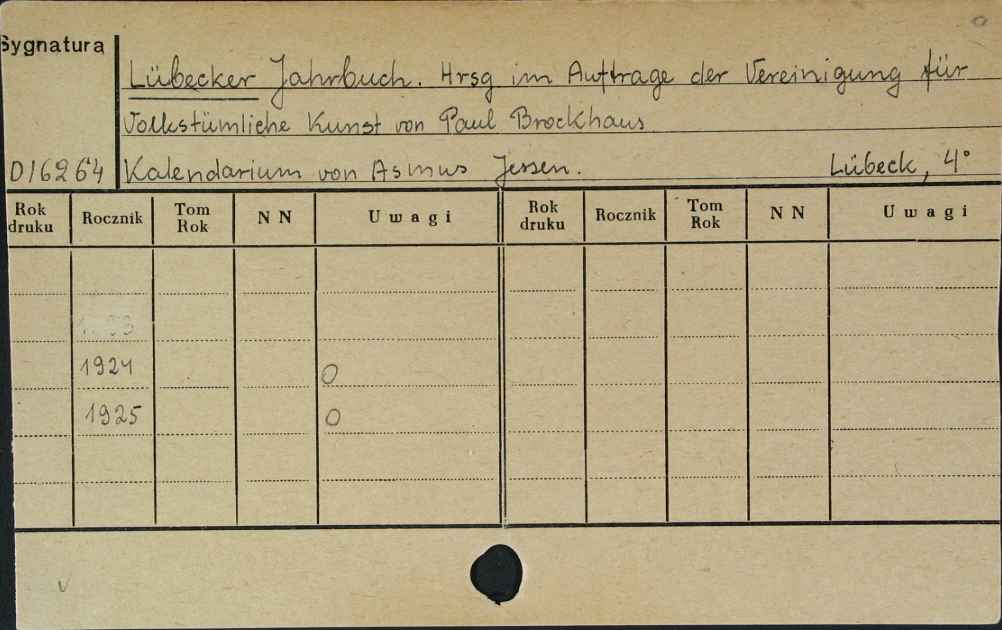 Sygnatura
Lübecker Jahrbuch. Hrsg im Auftrage der Vereinigung für
Volkstümliche Kunst von Paul Brockhaus
D16264 Kalendarium von Asmus Jessen. Lübeck, 4°
Rok druku Rocznik Tom Rok NN Uwagi Rok druku Rocznik Tom Rok NN Uwagi
1924 O
1925 O